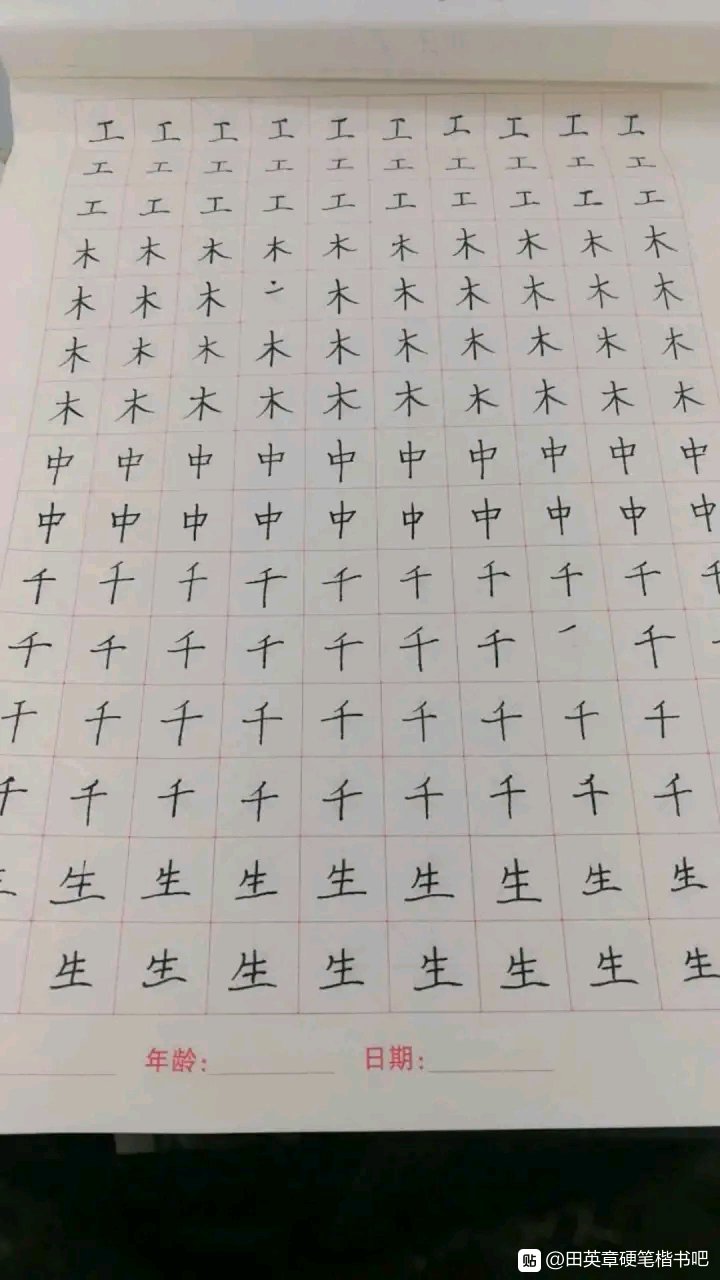 工工工工工工工工工工
工工工工工工工工工工
工工工工工工工工工工
木木木木木木木木木木
木木木木木木木木木
木木木木木木木木木木
木木木木木木木木木木
中中中中中中中中中中
中中中中中中中中中中
千千千千千千千千千千
千千千千千千千千
千千千千千千千千千
千千千千千千千千千
生生生生生生生生
生生生生生生生生
年龄: 日期:
贴 @田英章硬笔楷书吧